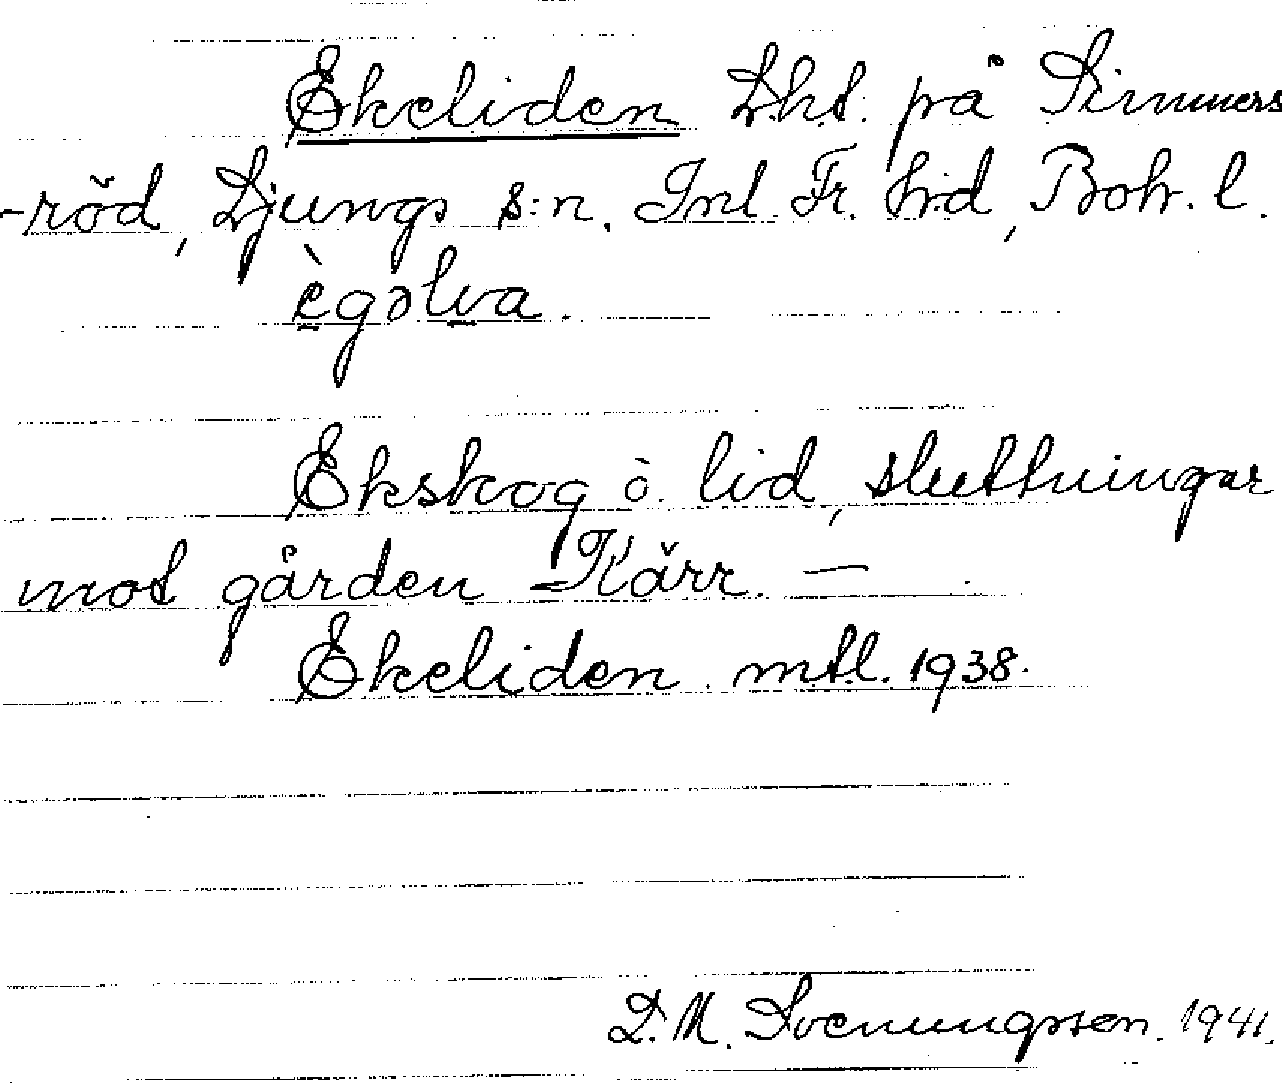 Ekeliden Lht. på Simmers
-röd, Ljungs s:n. Inl. Fr. h:d, Boh. l.
ègəlıa.
Ekskog ò. lid, sluttningar
mot gården Kärr. —
Ekeliden mtl. 1938.
D. M. Svenungsson. 1941.